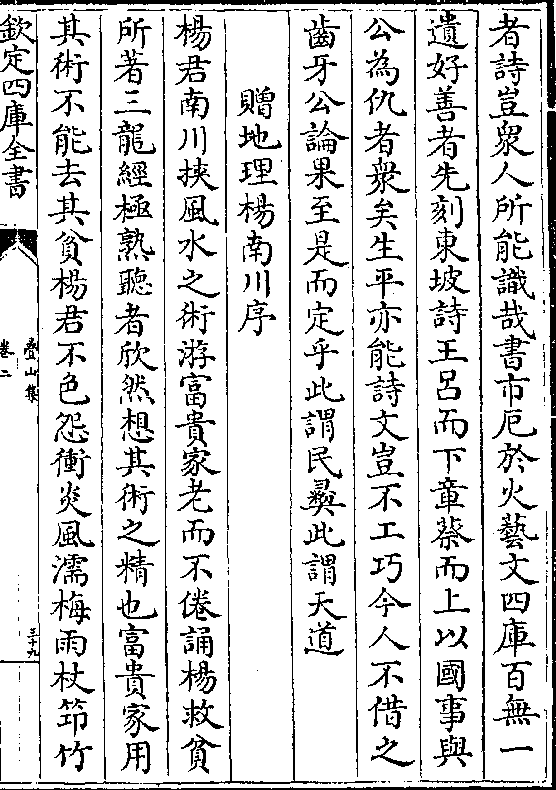 者詩豈衆人所能識哉書市厄於火藝文四庫百無一
遺好善者先刻東坡詩王呂而下章蔡而上以國事與
公為仇者衆矣生平亦能詩文豈不工巧今人不借之
齒牙公論果至是而定乎此謂民彞此謂天道
贈地理楊南川序
楊君南川挾風水之術游富貴家老而不倦誦楊救貧
所著三龍經極熟聽者欣然想其術之精也富貴家用
其術不能去其貧楊君不色怨衝炎風濡梅雨杖筇竹
欽定四庫全書
疊山集
卷二
三十九